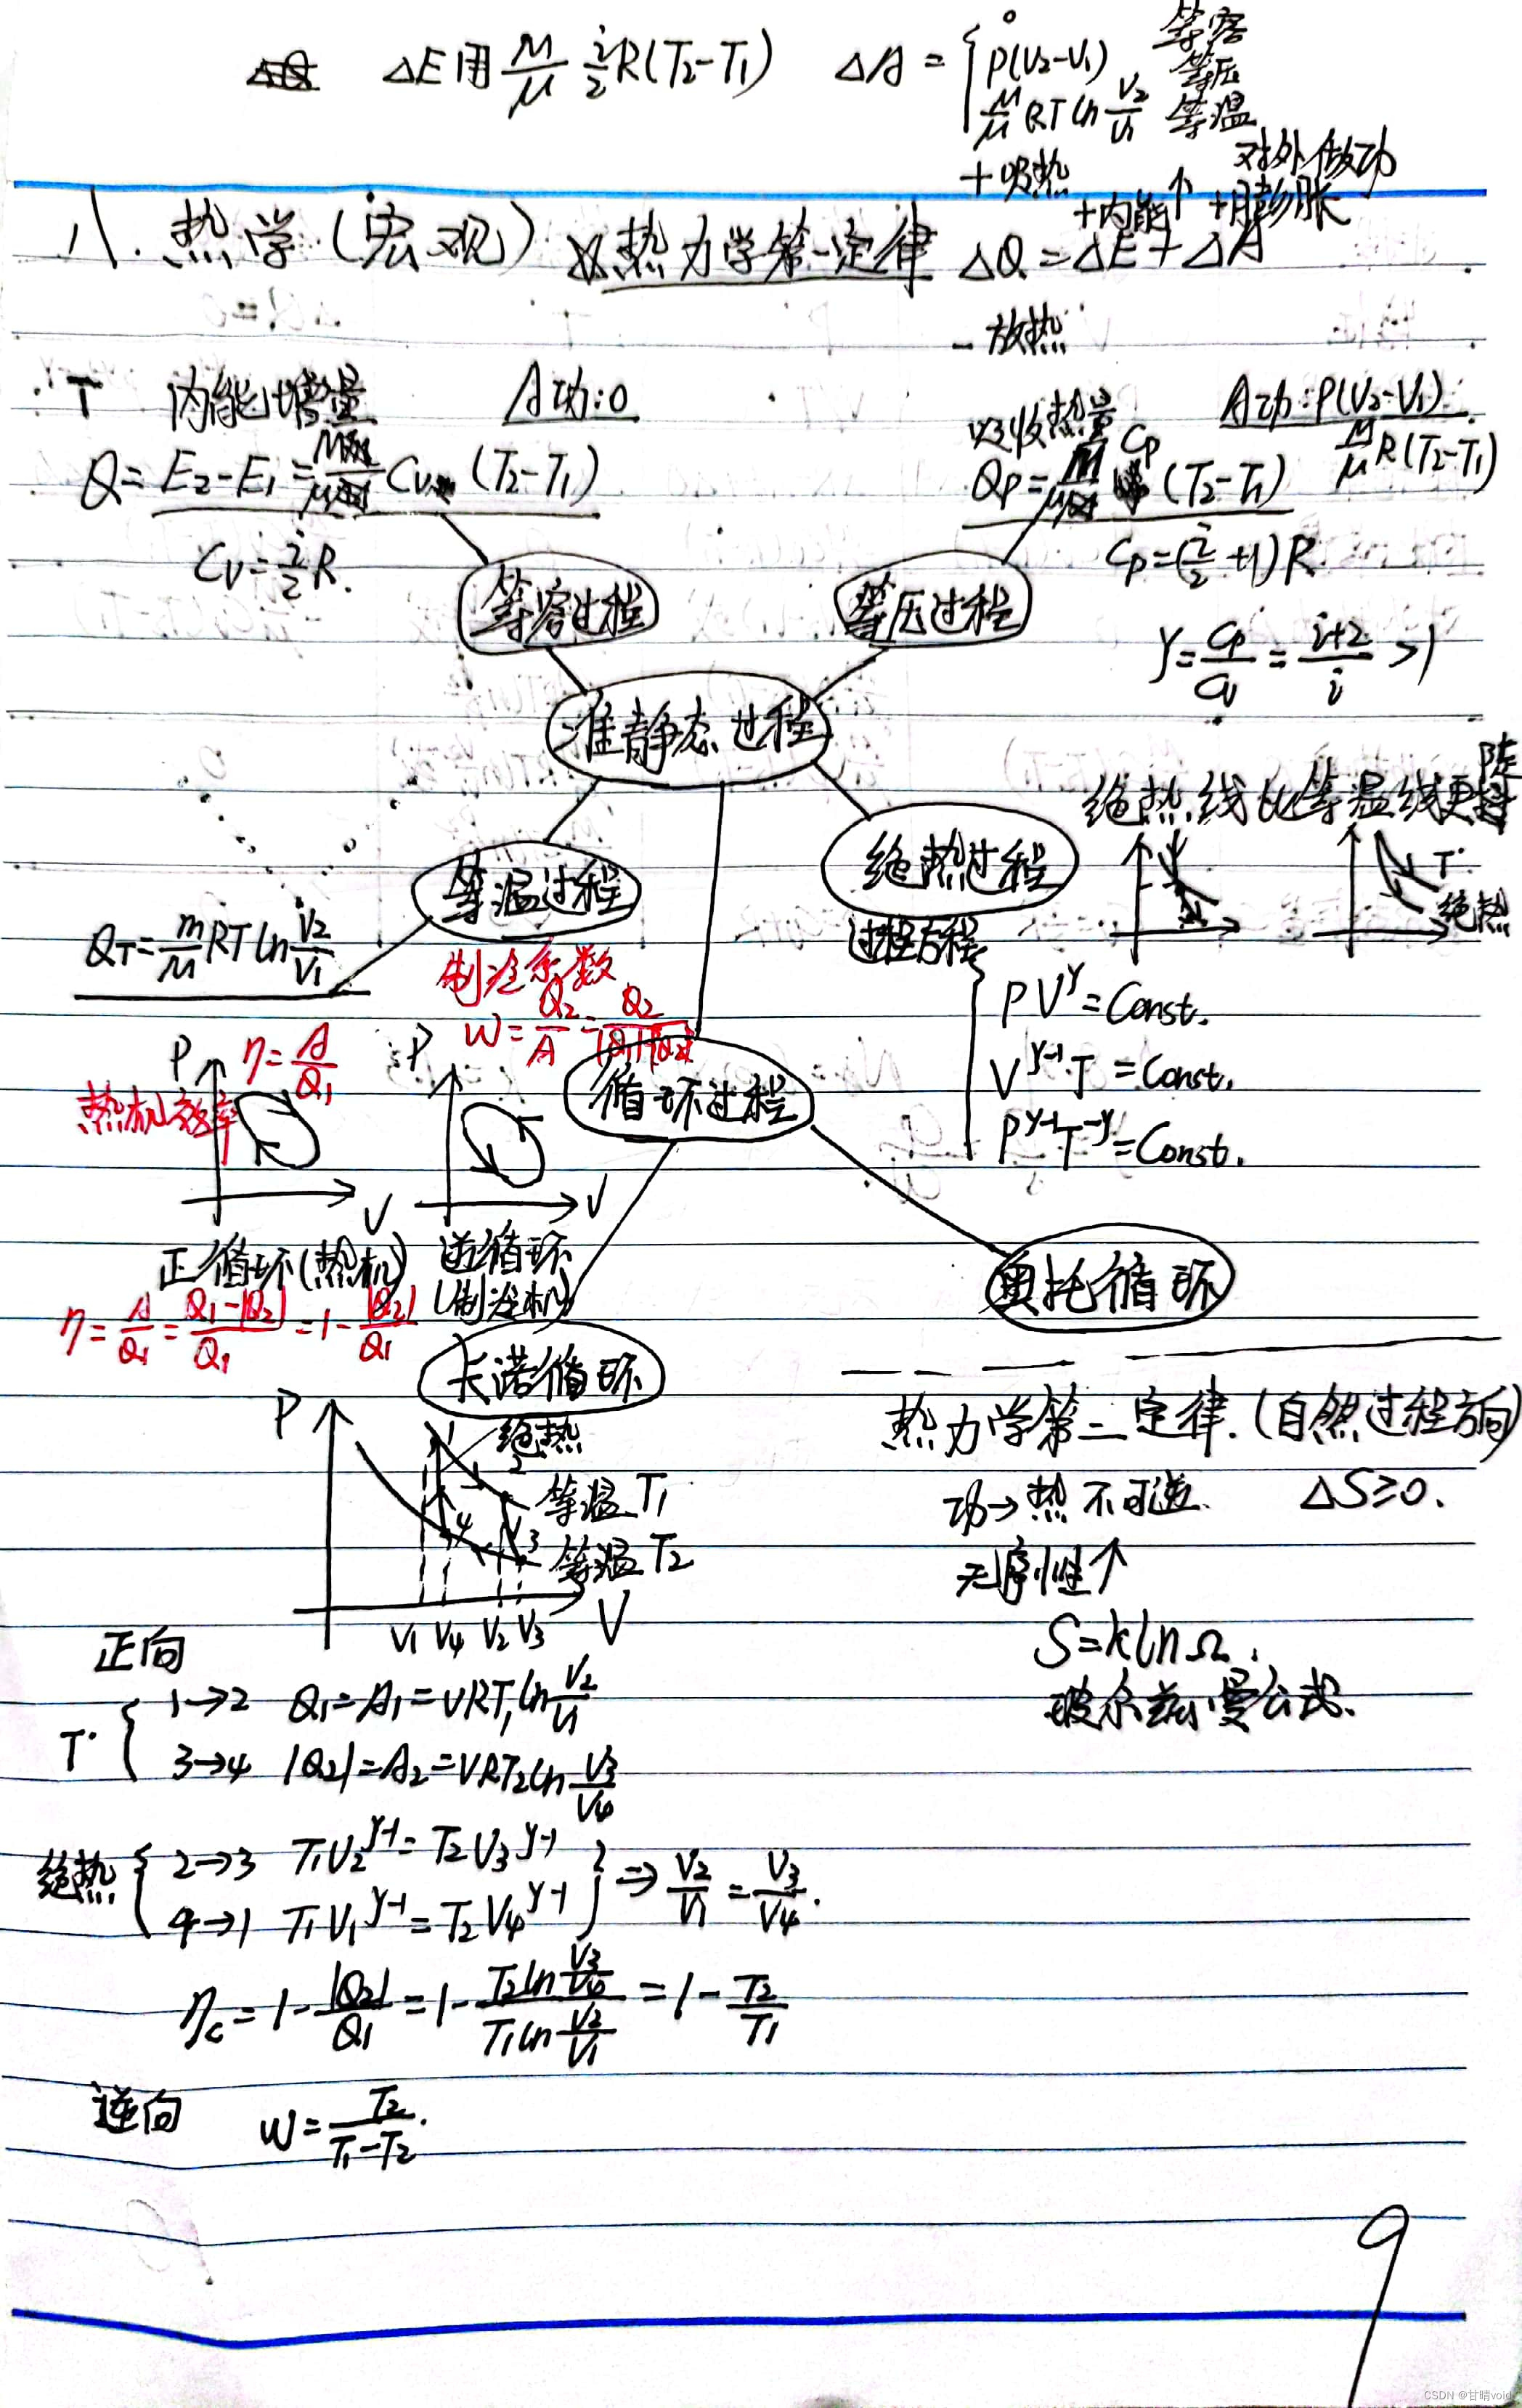 ΔE用 M/μ i/2 R(T₂-T₁) ΔA = { 0 等容
P(V₂-V₁) 等压
M/μ RT ln V₂/V₁ 等温
+吸热 +内能↑ 对外做功 +膨胀
八. 热学(宏观) 热力学第一定律 ΔQ = ΔE + ΔA
- 放热
T 内能增量 A功:0
Q = E₂-E₁ = M/μ Cv (T₂-T₁)
Cv = i/2 R.
吸收热量 A功:P(V₂-V₁)
Qp = M/μ Cp (T₂-T₁) M/μ R(T₂-T₁)
Cp = (i/2 +1) R
γ = Cp/Cv = i+2/i >1
等容过程 等压过程
准静态过程
绝热线比等温线更陡
T
绝热
等温过程 绝热过程
QT = m/M RT ln V₂/V₁
过程方程
PV^γ = Const.
V^γ-1 T = Const.
P^γ-1 T^-γ = Const.
制冷系数
W = Q₂/A = Q₂/|Q₁|-|Q₂|
循环过程
P η = A/Q₁ P
热机效率
V V
正循环(热机) 逆循环
(制冷机)
η = A/Q₁ = Q₁-|Q₂|/Q₁ = 1 - |Q₂|/Q₁
卡诺循环 奥托循环
P 绝热
1 2 等温T₁
4 3 等温T₂
V₁ V₄ V₂ V₃ V
热力学第二定律.(自然过程方向)
功→热 不可逆. ΔS≥0.
无序性↑
S = k ln Ω.
玻尔兹曼公式.
正向
T { 1→2 Q₁ = A₁ = νRT₁ ln V₂/V₁
3→4 |Q₂| = A₂ = νRT₂ ln V₃/V₄
绝热 { 2→3 T₁V₂^γ-1 = T₂V₃^γ-1
4→1 T₁V₁^γ-1 = T₂V₄^γ-1 } ⇒ V₂/V₁ = V₃/V₄.
ηc = 1 - |Q₂|/Q₁ = 1 - T₂ ln V₃/V₄ / T₁ ln V₂/V₁ = 1 - T₂/T₁
逆向 W = T₂/T₁-T₂.
9
CSDN @甘晴void